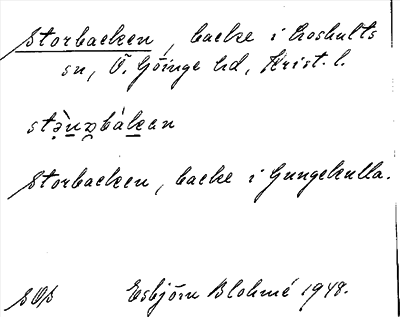 Storbacken, backe i Loshults
sn, Ö. Göinge hd, Krist. l.
Storbacken, backe i Gungekulla.
Esbjörn Blohmé 1948.